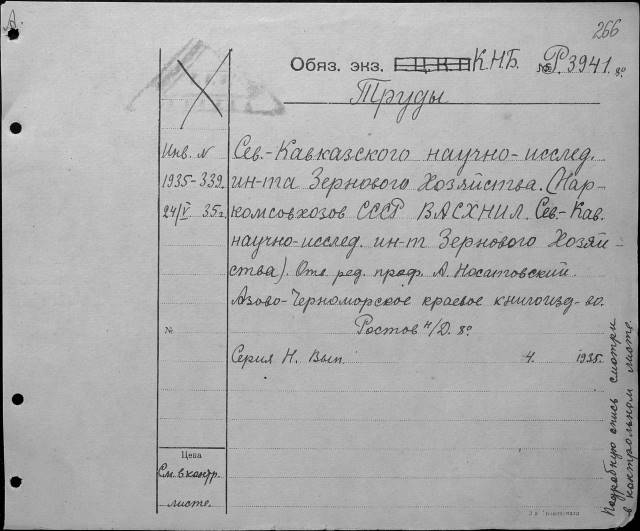 А.
266
Обяз. экз. Е.Ц.К.П К.Н.Б. № Р.3941. 8°
Труды
Инв. N
1935-339.
24/V 35г.
Сев.-Кавказского научно-исслед.
ин-та Зернового Хозяйства. (Нар-
комсовхозов СССР ВАСХНИЛ. Сев.-Кав.
научно-исслед. ин-т Зернового Хозяй-
ства). Отв. ред. проф. А. Носатовский.
Азово-Черноморское краевое книгоизд-во.
№
Ростов н/Д. 8°
Серия Н. Вып. 4. 1935.
Цена
См. в контр.
листе.
Подробную опись смотри
в контрольном листе.